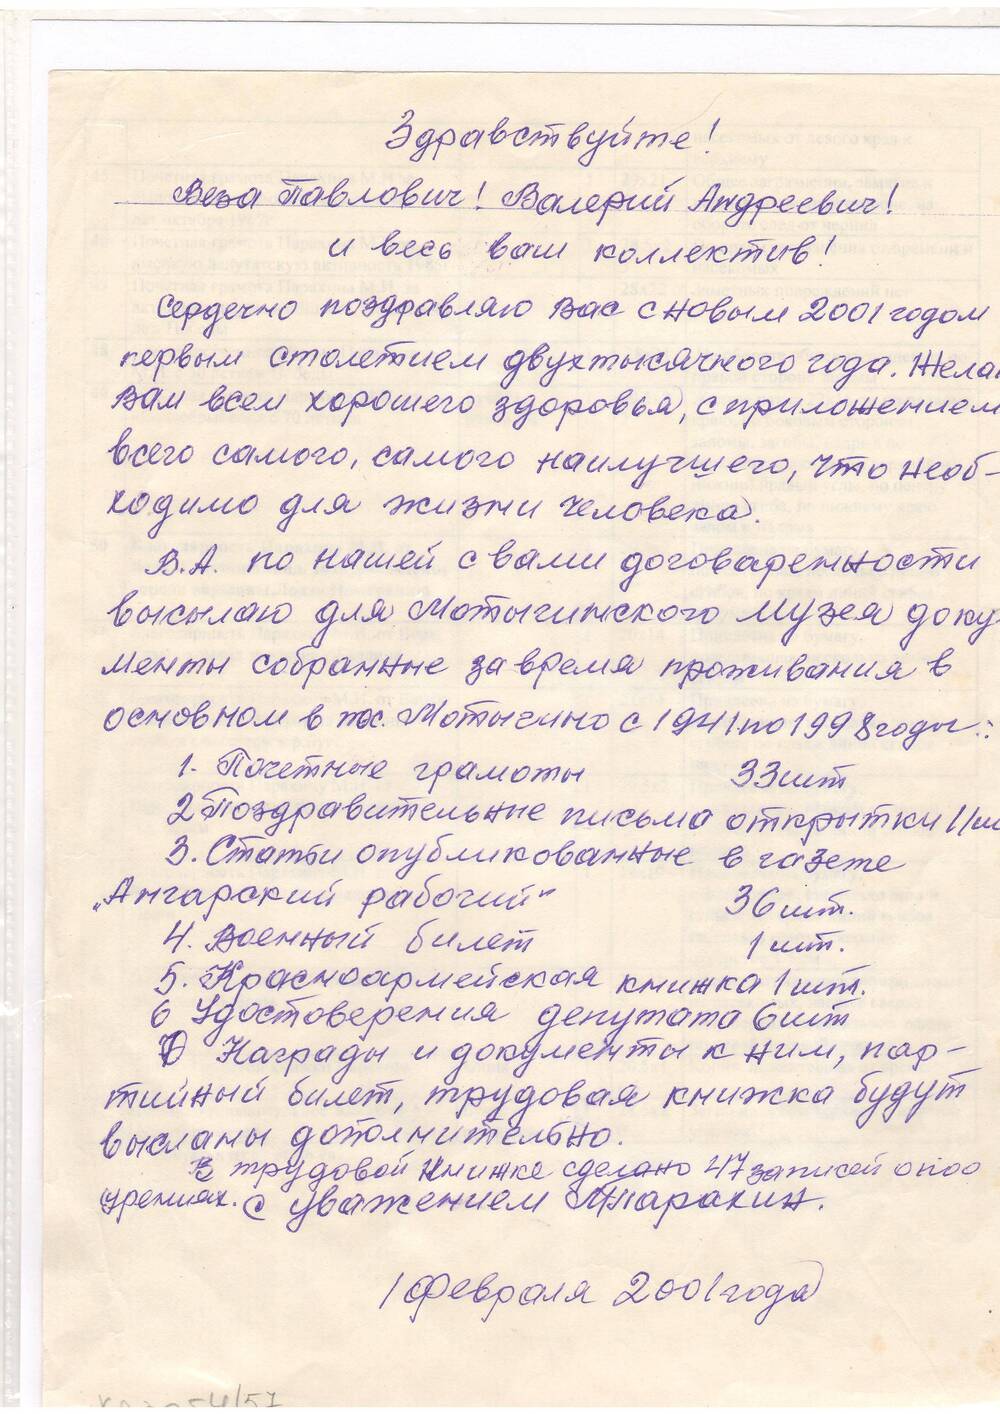 Здравствуйте!
Веза Павлович! Валерий Андреевич!
и весь ваш коллектив!
Сердечно поздравляю Вас с новым 2001 годом
первым столетием двухтысячного года. Желаю
Вам всем хорошего здоровья, с приложением
всего самого, самого наилучшего, что необ-
ходимо для жизни человека.
В.А. по нашей с вами договаренности
высылаю для Мотыгинского музея доку-
менты собранные за время проживания в
основном в Мотыгино с 1941 по 1998 годы:
1. Почетные грамоты 33 шт
2 Поздравительные письма открытки 11 шт
3. Статьи опубликованные в газете
„Ангарский рабочий“ 36 шт.
4. Военный билет 1 шт.
5. Красноармейская книжка 1 шт.
6 Удостоверения депутата 6 шт
7 Награды и документы к ним, пар-
тийный билет, трудовая книжка будут
высланы дополнительно.
В трудовой книжке сделано 47 записей о поо
щрениях. С уважением МПаракин.
1 февраля 2001 года
54/57